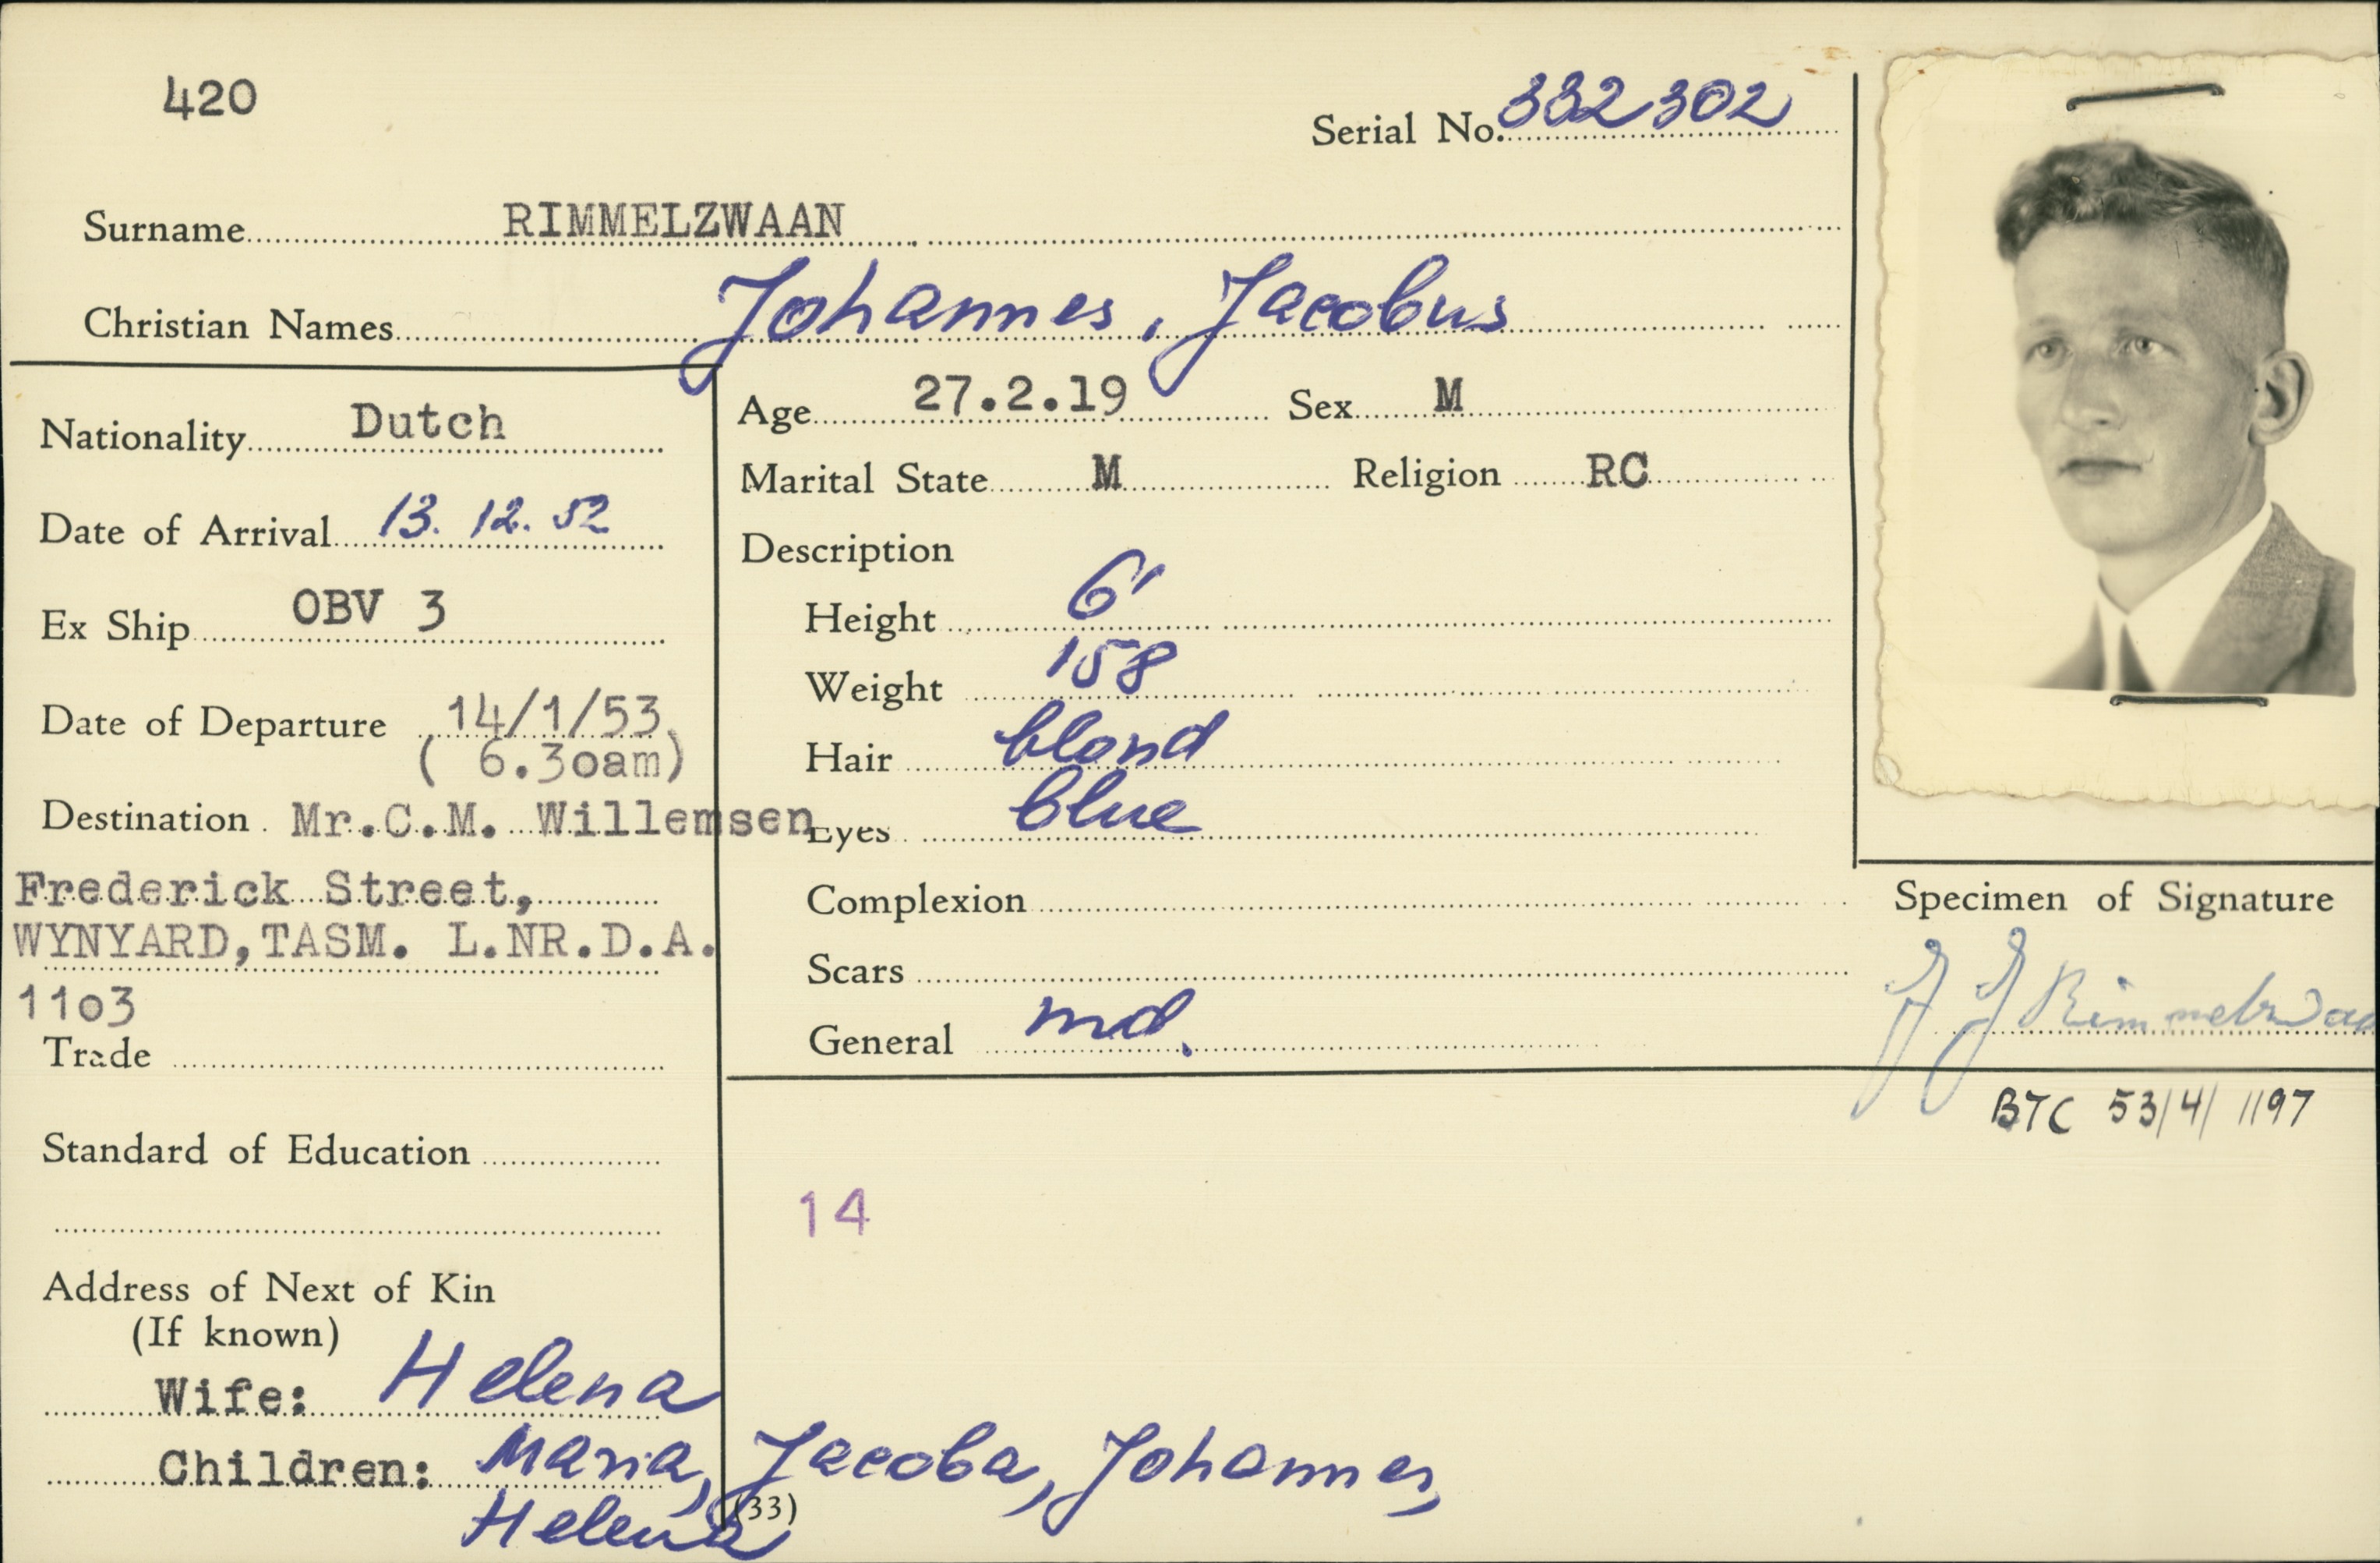 420
Serial No. 332302
Surname RIMMELZWAAN
Christian Names Johannes, Jacobus
Nationality Dutch
Date of Arrival 13. 12. 52
Ex Ship OBV 3
Date of Departure 14/1/53
( 6.3oam)
Destination Mr.C.M. Willemsen
Frederick Street,
WYNYARD,TASM. L.NR.D.A.
11o3
Trade
Standard of Education
Address of Next of Kin
(If known)
Wife: Helena
Children: Maria, Jacoba, Johannes,
Helena
(33)
Age 27.2.19 Sex M
Marital State M Religion RC
Description
Height 6'
Weight 158
Hair blond
Eyes blue
Complexion
Scars
General md.
14
Specimen of Signature
J J Rimmelzwaa
BTC 53/4/1197